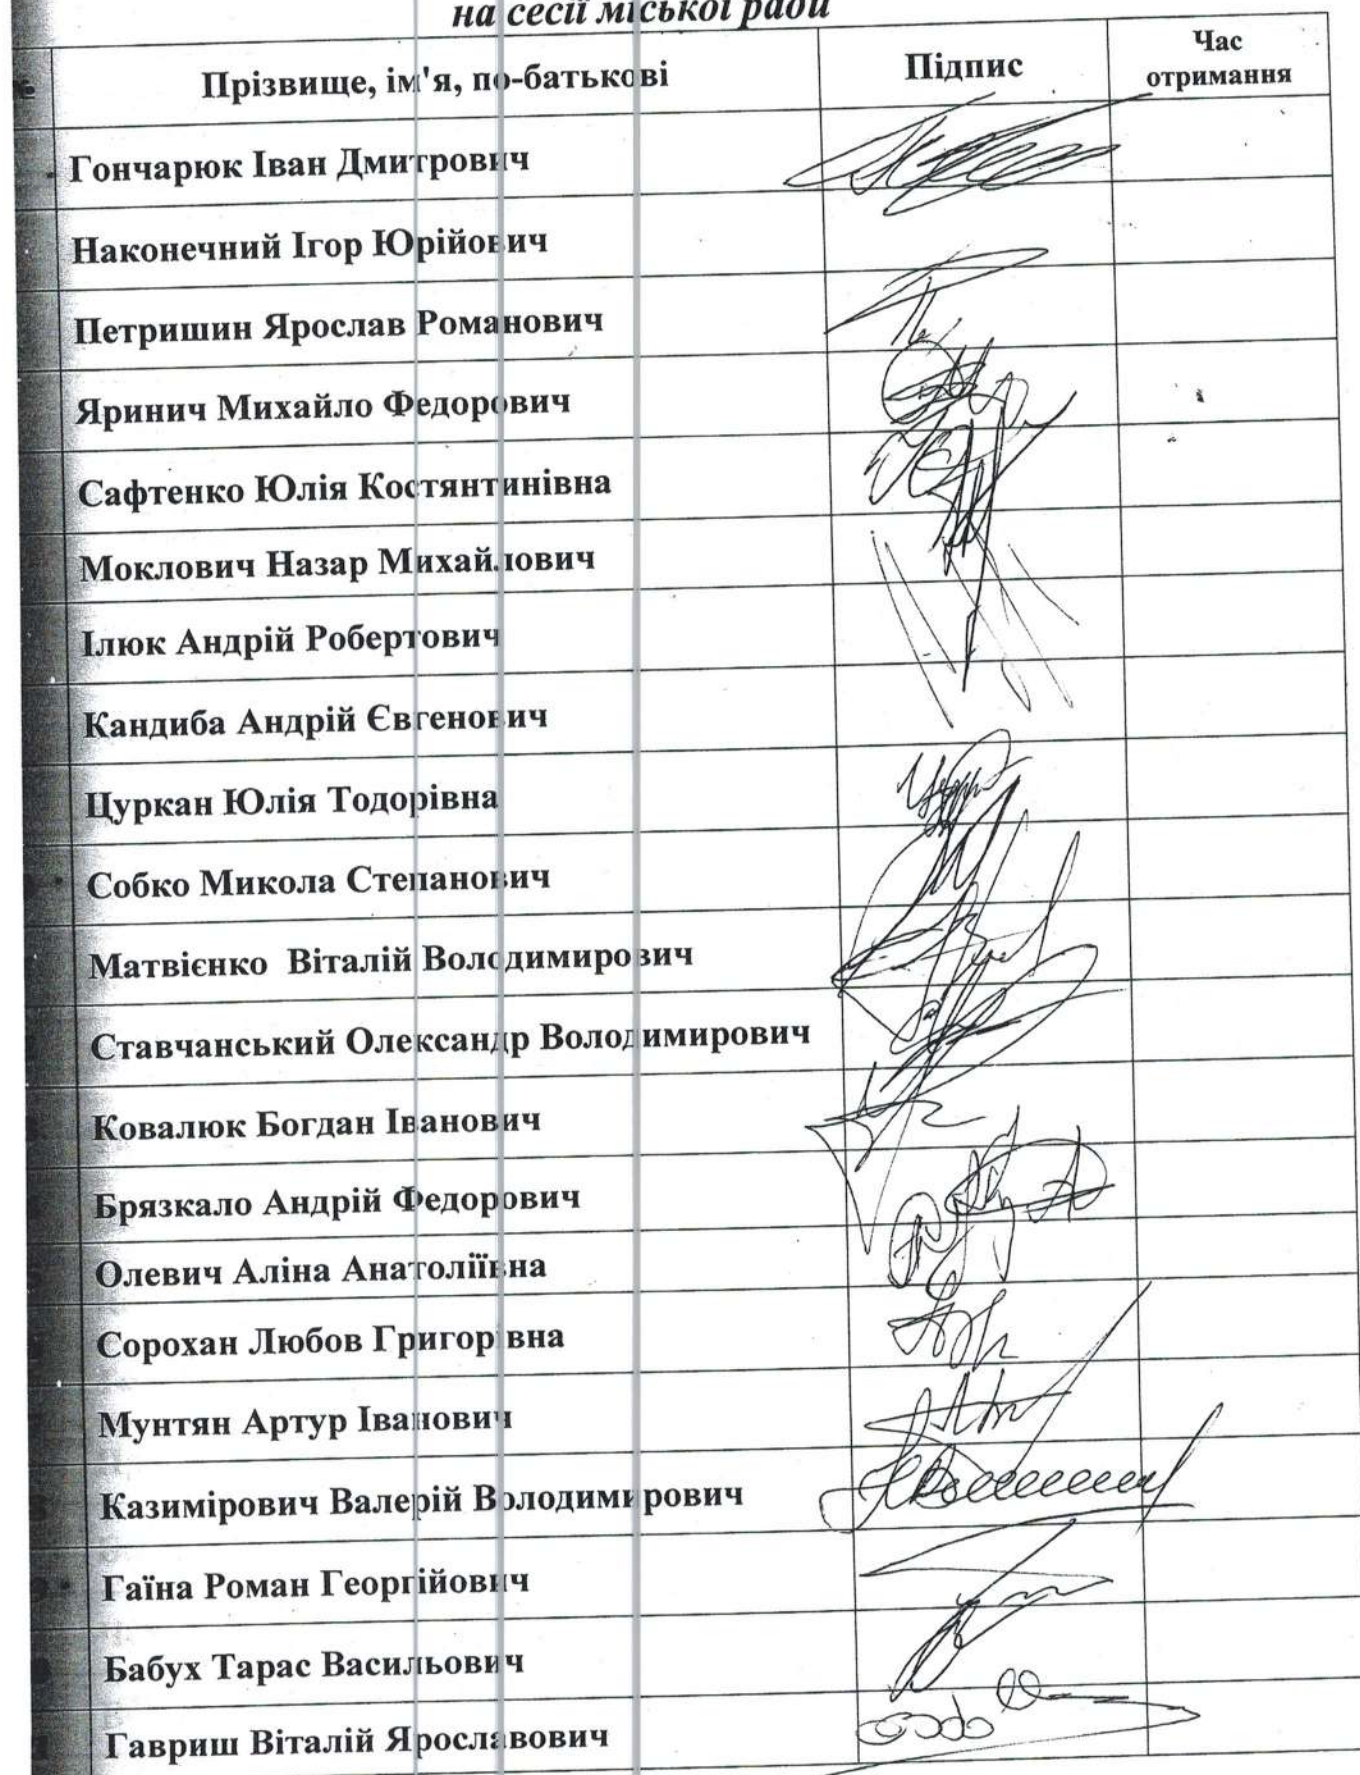 на сесії міської ради
Прізвище, ім'я, по-батькові Підпис Час отримання
Гончарюк Іван Дмитрович
Наконечний Ігор Юрійович
Петришин Ярослав Романович
Яринич Михайло Федорович
Сафтенко Юлія Костянтинівна
Моклович Назар Михайлович
Ілюк Андрій Робертович
Кандиба Андрій Євгенович
Цуркан Юлія Тодорівна
Собко Микола Степанович
Матвієнко Віталій Володимирович
Ставчанський Олександр Володимирович
Ковалюк Богдан Іванович
Брязкало Андрій Федорович
Олевич Аліна Анатоліївна
Сорохан Любов Григорівна
Мунтян Артур Іванович
Казимірович Валерій Володимирович
Гаїна Роман Георгійович
Бабух Тарас Васильович
Гавриш Віталій Ярославович